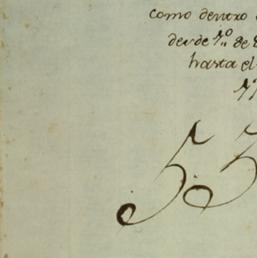 como dentro
desde 1º de
hasta el
53